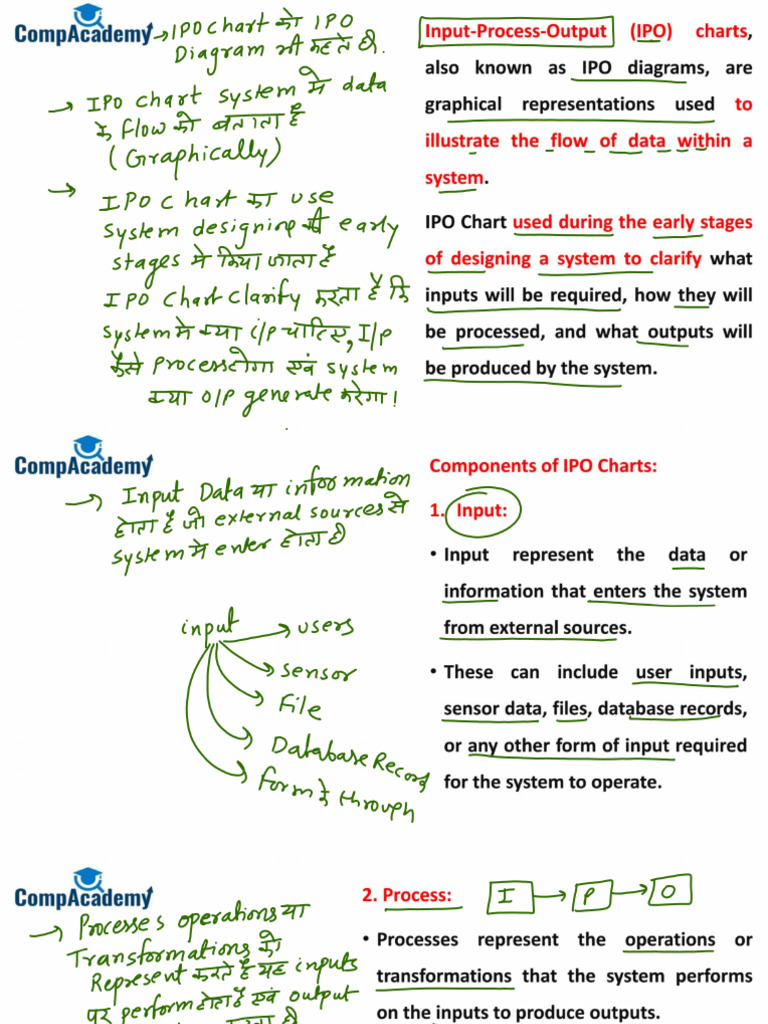 CompAcademy
→ IPO Chart को IPO
Diagram भी कहते है।
→ IPO Chart System मे data
के flow को बताता है
(Graphically)
→ IPO Chart का use
System designing की early
stages मे किया जाता है
IPO Chart Clarify करता है कि
System मे क्या i/p चाहिए, I/P
कैसे Process होगा एवं system
क्या O/P generate करेगा!
Input-Process-Output (IPO) charts,
also known as IPO diagrams, are
graphical representations used to
illustrate the flow of data within a
system.
IPO Chart used during the early stages
of designing a system to clarify what
inputs will be required, how they will
be processed, and what outputs will
be produced by the system.
CompAcademy
→ Input Data या information
होता है जो external sources से
System मे enter होता है
input
→ users
→ Sensor
→ File
→ Database Record
→ form के through
Components of IPO Charts:
1. Input:
• Input represent the data or
information that enters the system
from external sources.
• These can include user inputs,
sensor data, files, database records,
or any other form of input required
for the system to operate.
CompAcademy
→ Processes operations या
Transformations को
Represent करते है यह inputs
पर perform होता है एवं output
2. Process:
I → P → O
• Processes represent the operations or
transformations that the system performs
on the inputs to produce outputs.